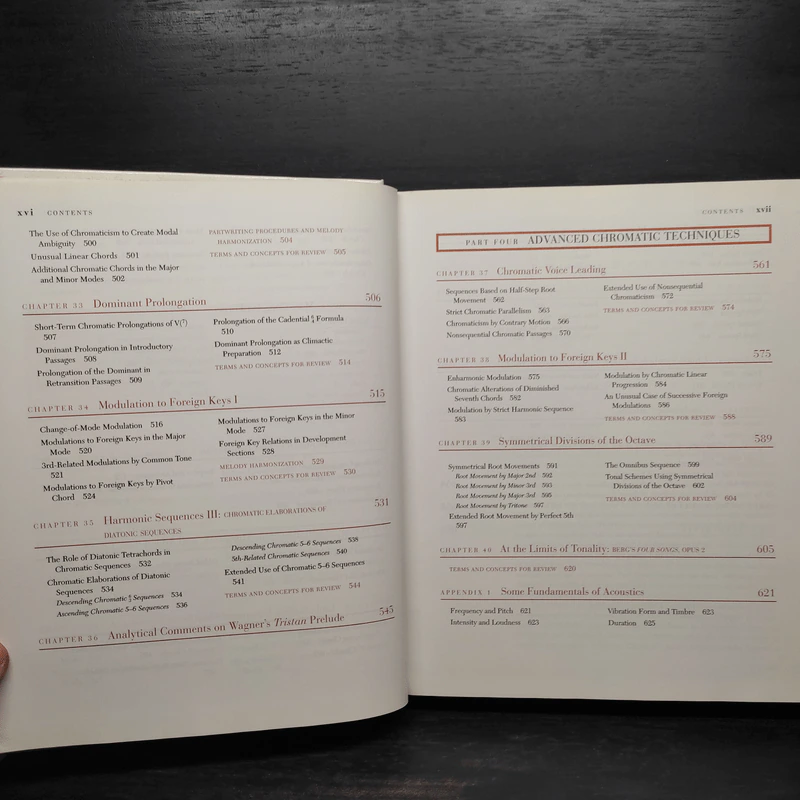 xvi CONTENTS
The Use of Chromaticism to Create Modal
Ambiguity 500
Unusual Linear Chords 501
Additional Chromatic Chords in the Major
and Minor Modes 502
PARTWRITING PROCEDURES AND MELODY
HARMONIZATION 504
TERMS AND CONCEPTS FOR REVIEW 505
CHAPTER 33 Dominant Prolongation 506
Short-Term Chromatic Prolongations of V(7)
507
Dominant Prolongation in Introductory
Passages 508
Prolongation of the Dominant in
Retransition Passages 509
Prolongation of the Cadential 6/4 Formula
510
Dominant Prolongation as Climactic
Preparation 512
TERMS AND CONCEPTS FOR REVIEW 514
CHAPTER 34 Modulation to Foreign Keys I 515
Change-of-Mode Modulation 516
Modulations to Foreign Keys in the Major
Mode 520
3rd-Related Modulations by Common Tone
521
Modulations to Foreign Keys by Pivot
Chord 524
Modulations to Foreign Keys in the Minor
Mode 527
Foreign Key Relations in Development
Sections 528
MELODY HARMONIZATION 529
TERMS AND CONCEPTS FOR REVIEW 530
CHAPTER 35 Harmonic Sequences III: CHROMATIC ELABORATIONS OF 531
DIATONIC SEQUENCES
The Role of Diatonic Tetrachords in
Chromatic Sequences 532
Chromatic Elaborations of Diatonic
Sequences 534
Descending Chromatic 6/3 Sequences 534
Ascending Chromatic 5–6 Sequences 536
Descending Chromatic 5–6 Sequences 538
5th-Related Chromatic Sequences 540
Extended Use of Chromatic 5–6 Sequences
541
TERMS AND CONCEPTS FOR REVIEW 544
CHAPTER 36 Analytical Comments on Wagner's Tristan Prelude 545
CONTENTS xvii
PART FOUR ADVANCED CHROMATIC TECHNIQUES
CHAPTER 37 Chromatic Voice Leading 561
Sequences Based on Half-Step Root
Movement 562
Strict Chromatic Parallelism 563
Chromaticism by Contrary Motion 566
Nonsequential Chromatic Passages 570
Extended Use of Nonsequential
Chromaticism 572
TERMS AND CONCEPTS FOR REVIEW 574
CHAPTER 38 Modulation to Foreign Keys II 575
Enharmonic Modulation 575
Chromatic Alterations of Diminished
Seventh Chords 582
Modulation by Strict Harmonic Sequence
583
Modulation by Chromatic Linear
Progression 584
An Unusual Case of Successive Foreign
Modulations 586
TERMS AND CONCEPTS FOR REVIEW 588
CHAPTER 39 Symmetrical Divisions of the Octave 589
Symmetrical Root Movements 591
Root Movement by Major 2nd 592
Root Movement by Minor 3rd 593
Root Movement by Major 3rd 595
Root Movement by Tritone 597
Extended Root Movement by Perfect 5th
597
The Omnibus Sequence 599
Tonal Schemes Using Symmetrical
Divisions of the Octave 602
TERMS AND CONCEPTS FOR REVIEW 604
CHAPTER 40 At the Limits of Tonality: BERG'S FOUR SONGS, OPUS 2 605
TERMS AND CONCEPTS FOR REVIEW 620
APPENDIX 1 Some Fundamentals of Acoustics 621
Frequency and Pitch 621
Intensity and Loudness 623
Vibration Form and Timbre 623
Duration 625